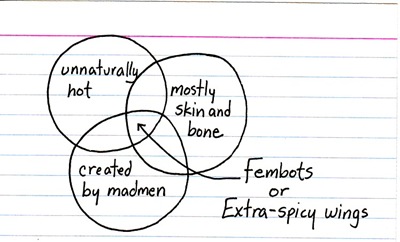 unnaturally
hot
mostly
skin and
bone
created
by madmen
Fembots
or
Extra-spicy wings